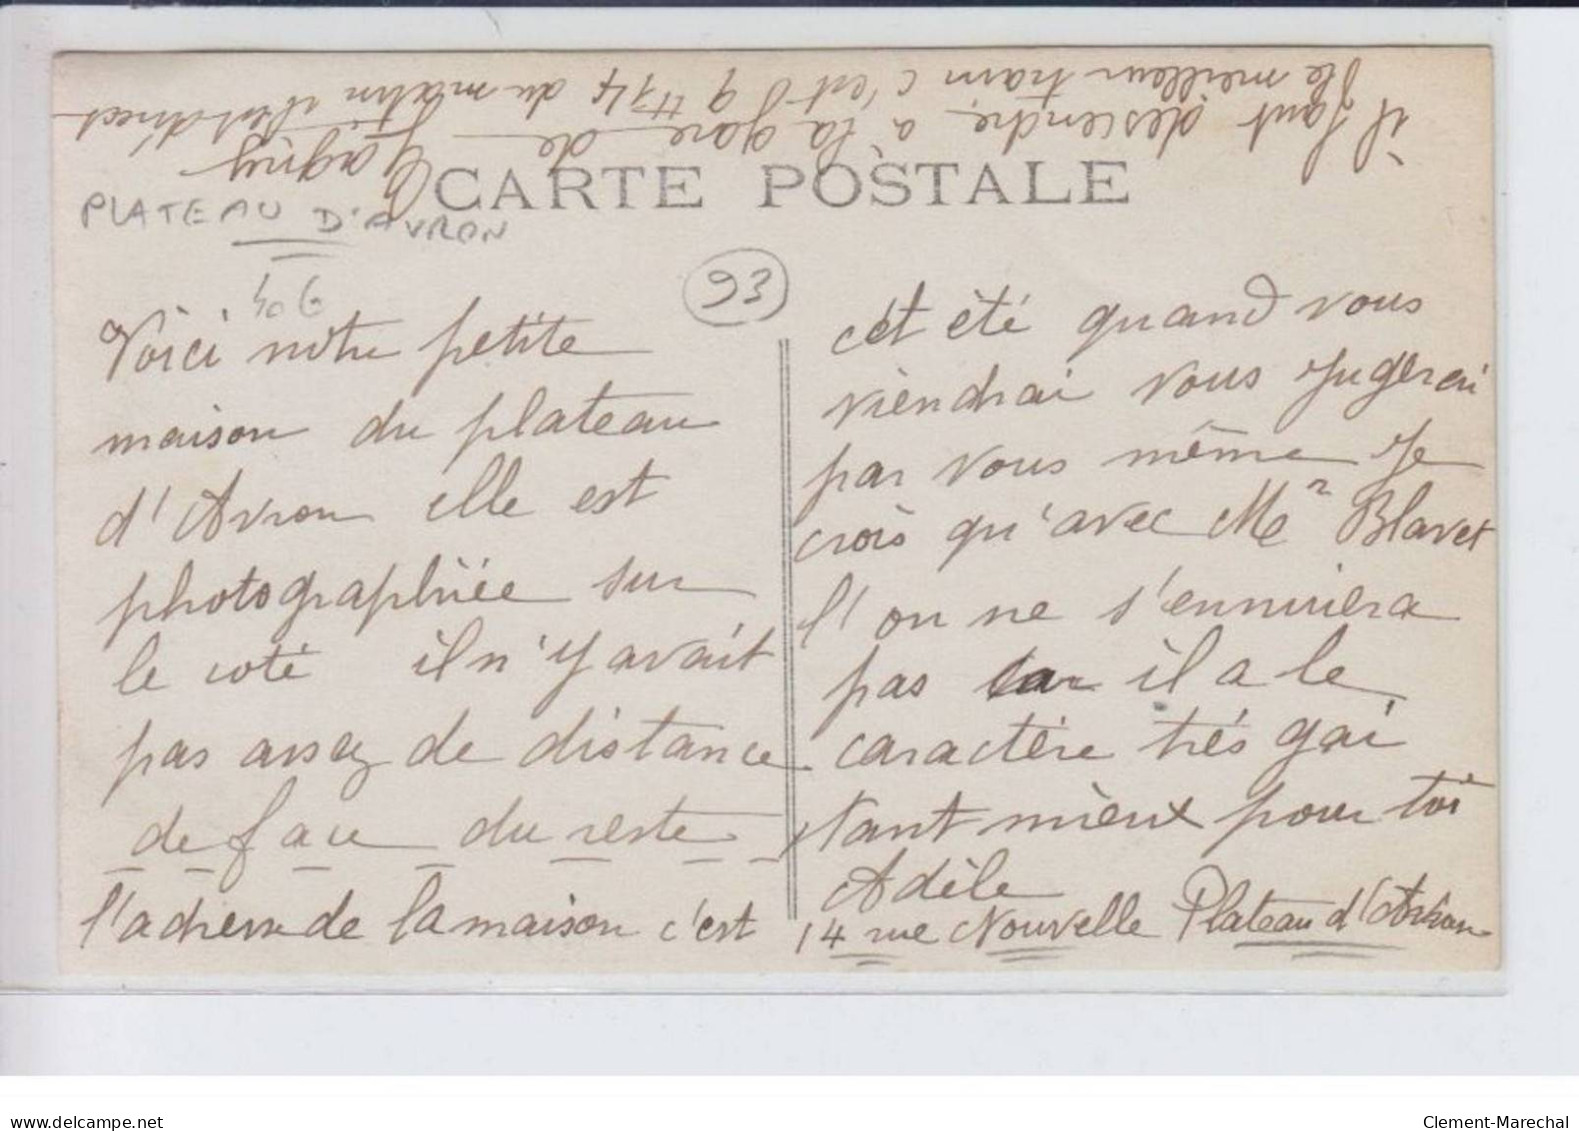 il faut descendre à la gare de Gagny
le meilleur train c'est 9 H 14 du matin il est direct
CARTE POSTALE
PLATEAU D'AVRON
93
Voici notre petite
maison du plateau
d'Avron elle est
photographiée sur
le coté il n'y avait
pas assez de distance
de face du reste
l'adresse de la maison c'est
cet été quand vous
viendrai vous jugerai
par vous même je
crois qu'avec Mr Blavet
l'on ne s'ennuiera
pas car il a le
caractère très gai
tant mieux pour toi
Adèle
14 rue Nouvelle Plateau d'Avron
delcampe.net
Clement-Marechal